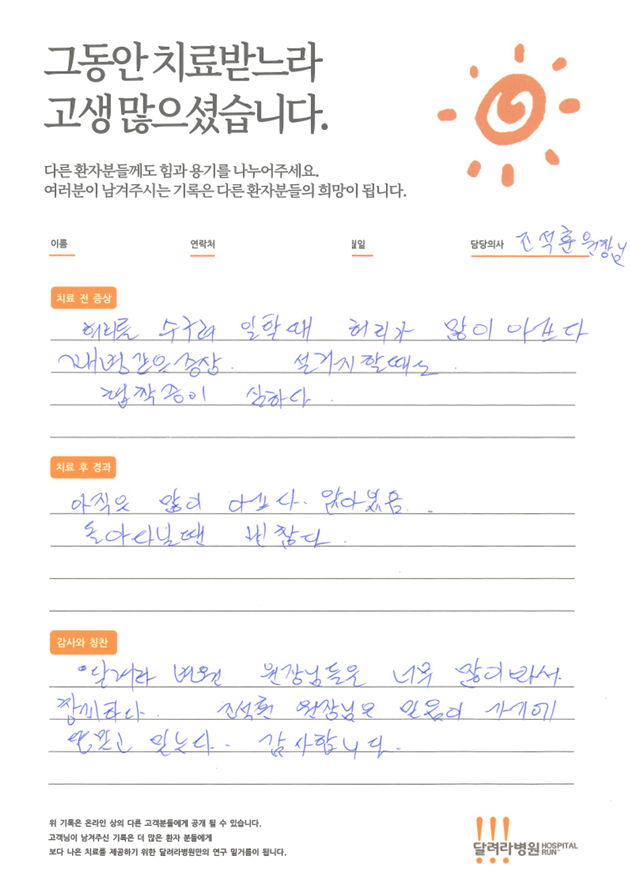 그동안 치료받느라
고생 많으셨습니다.
다른 환자분들께도 힘과 용기를 나누어주세요.
여러분이 남겨주시는 기록은 다른 환자분들의 희망이 됩니다.
이름 연락처 월일 담당의사 조석훈 원장님
치료 전 증상
허리를 수구려 일할때 허리가 많이 아프다
같은 증상. 설거지할때도
심하다
치료 후 경과
아직은 많이 아프다. 앉아있음
돌아다닐땐 괜찮다.
감사와 칭찬
달려라 병원 원장님들은 너무 많이봐서
친하다. 조석훈 원장님은 믿음이 가기에
믿고 있는다. 감사합니다.
위 기록은 온라인 상의 다른 고객분들에게 공개 될 수 있습니다.
고객님이 남겨주신 기록은 더 많은 환자 분들에게
보다 나은 치료를 제공하기 위한 달려라병원만의 연구 밑거름이 됩니다.
달려라병원 HOSPITAL RUN